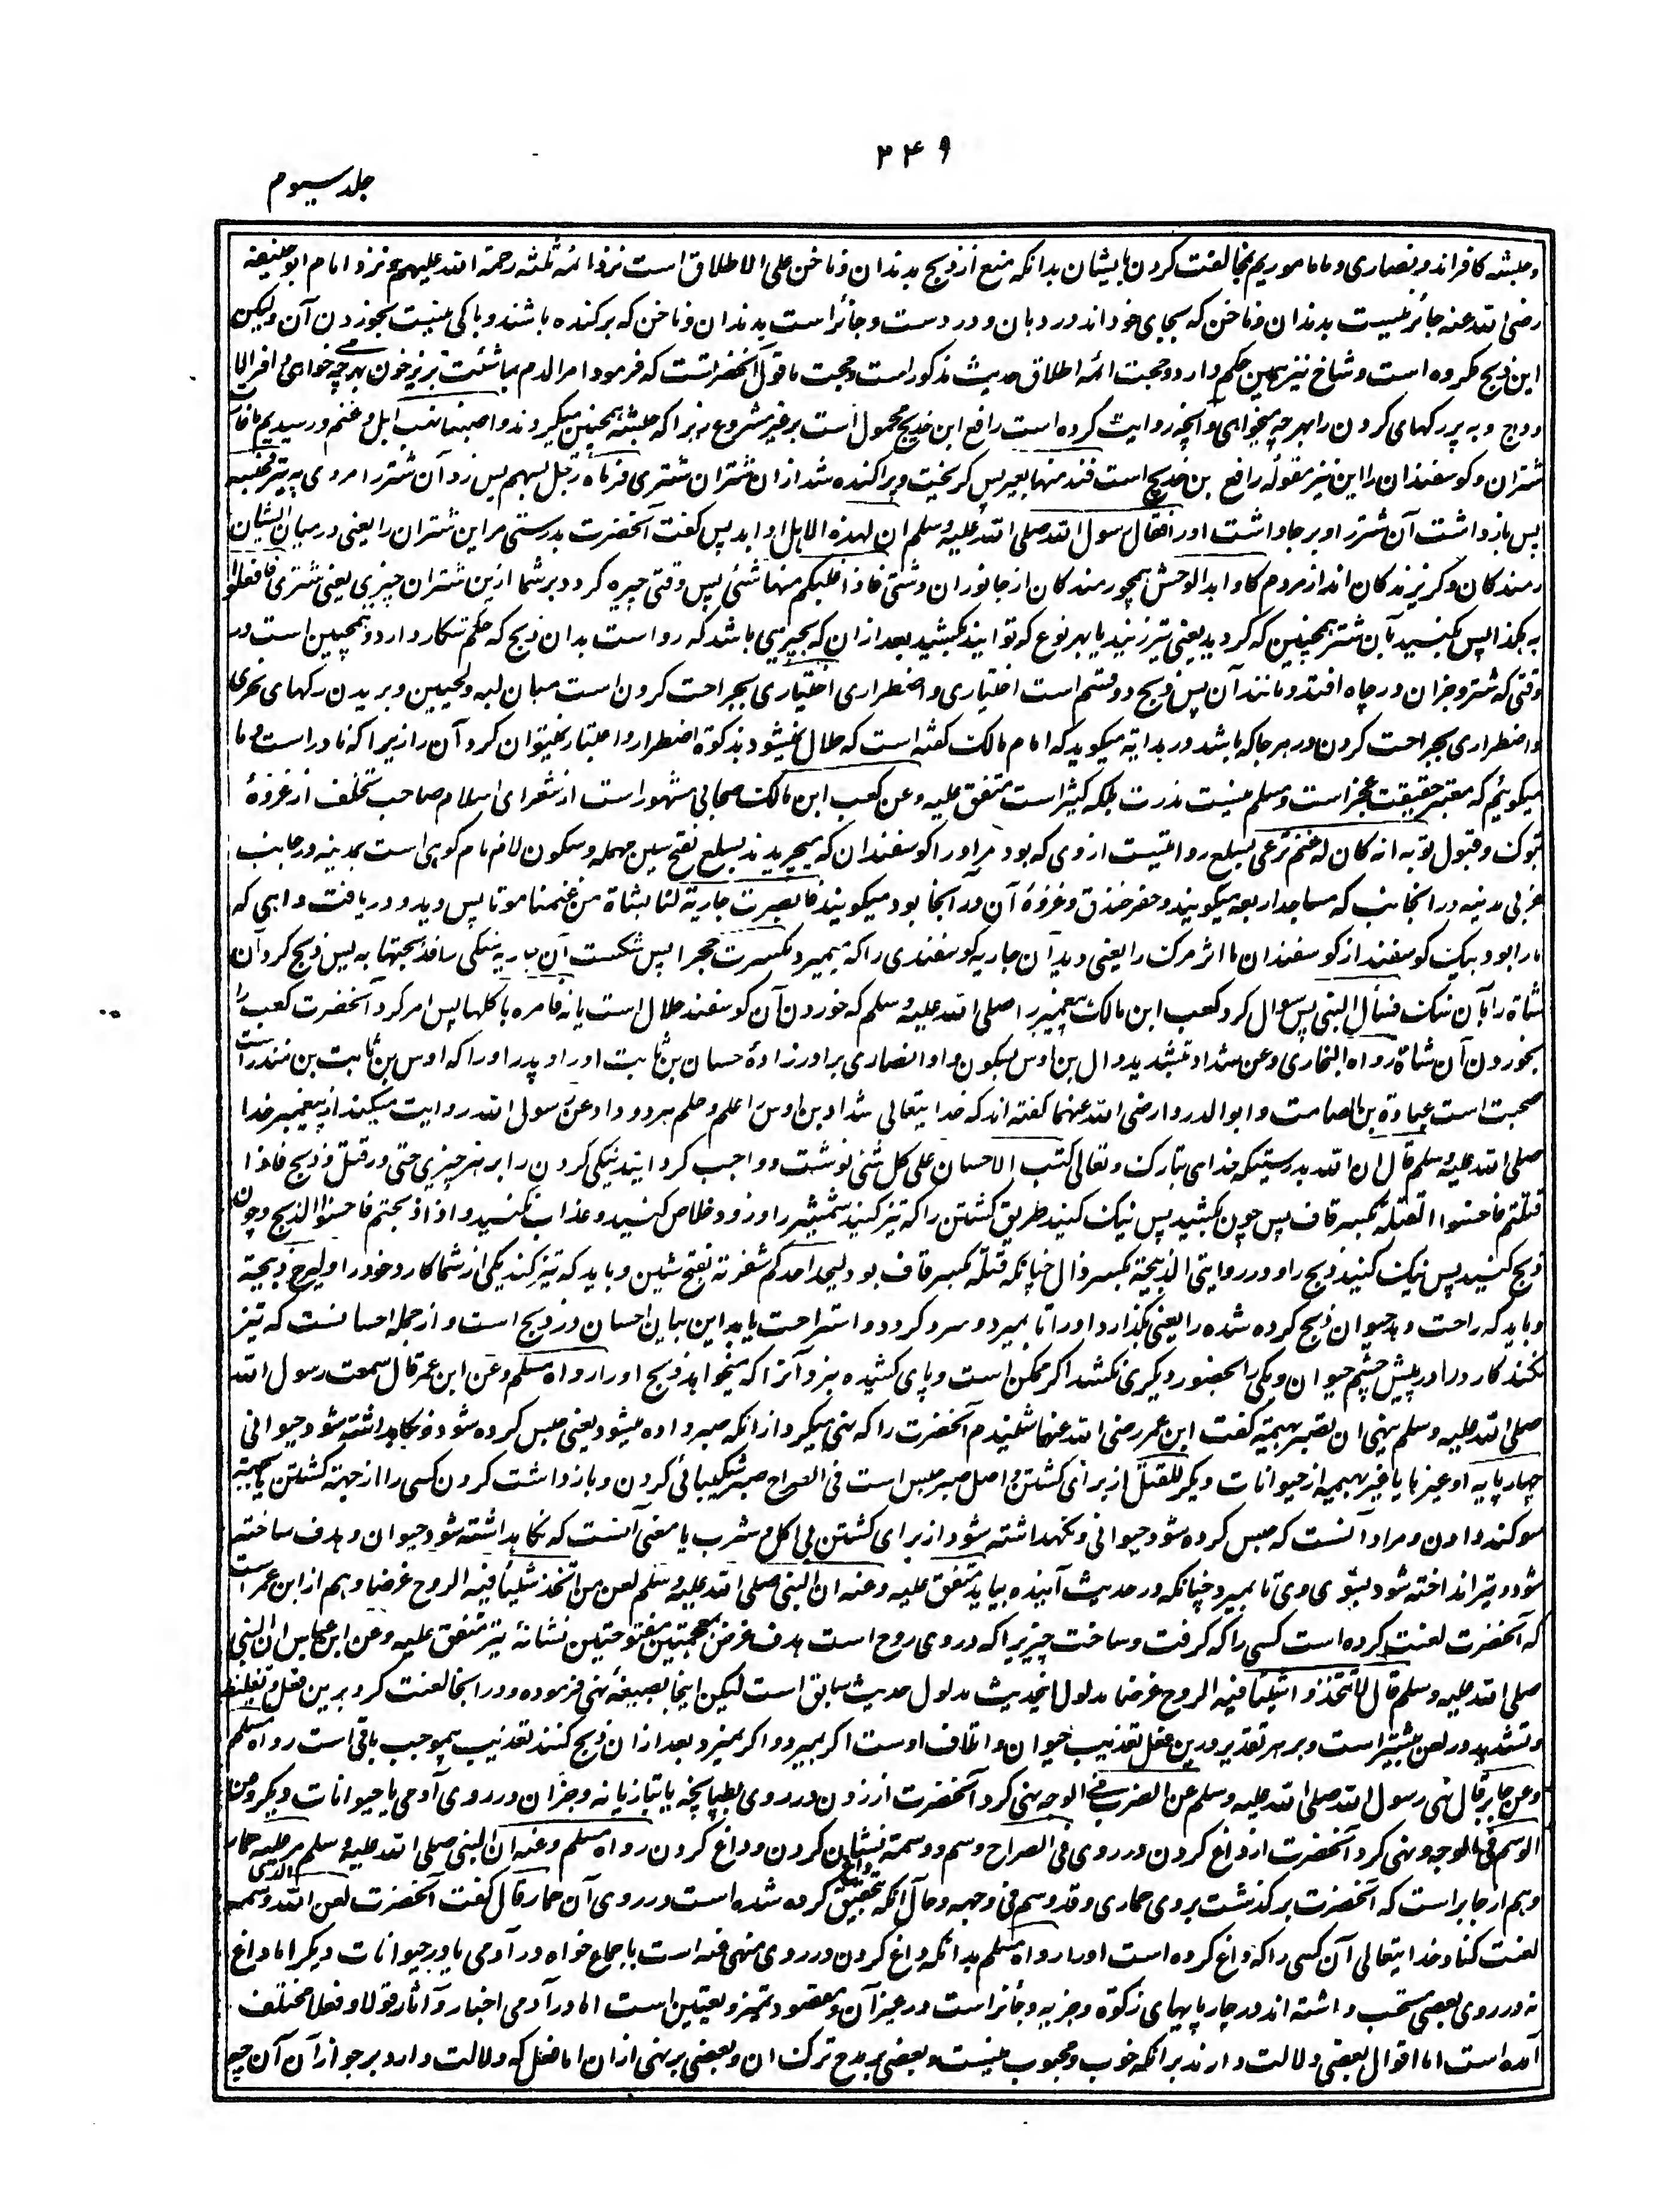 ۴۴۹
جلد سیوم
و حبشه کافراند و نصاری و ما ماموریم بمخالفت کردن بایشان بدانکه منع از ذبح بدندان و ناخن علی الاطلاق است نزد ائمه ثلثه رحمة الله علیهم و نزد امام ابوحنیفه
رضی الله عنه جائز نیست بدندان و ناخن که بجای خود اند در دهان و در دست و جائز است بدندان و ناخن که برکنده باشند و باکی نیست بخوردن آن ولیکن
این ذبح مکروه است و شاخ نیز همین حکم دارد و حجت ائمه اطلاق حدیث مذکور است و حجت ما قول آنحضرت است که فرمود امر الدم بما شئت بریز خون بهرچه خواهی و افر الا
وداج و ببر رگهای گردن را بهرچه میخواهی و آنچه روایت کرده است رافع ابن خدیج محمول است بر غیر مشروع زیرا که حبشه همچنین میکردند و اصبنا نهب ابل و غنم و رسیدیم ما غارت
شتران و گوسفندان را این نیز مقوله رافع بن خدیج است فند منها بعیر پس گریخت و پراکنده شد از ان شتران شتری فرماه رجل بسهم پس زد آن شتر را مردی به تیر فحبسه
پس بازداشت آن شتر را و بر جا داشت او را فقال رسول الله صلی الله علیه و سلم ان لهذه الابل اوابد پس گفت آنحضرت بدرستی مر این شتران را یعنی در میان ایشان
رمندگان و گریزندگان اند از مردم کاوابد الوحش همچو رمندگان از جانوران وشتی فاذا غلبکم منها شئ پس وقتی چیره گردد بر شما ازین شتران چیزی یعنی شتری فافعلوا
به هکذا پس بکنید بآن شتر همچنین که کردید یعنی تیر زنید یا بهر نوع که توانید بکشید بعد از ان که بچیزی باشد که روا است بدان ذبح که حکم شکار دارد و همچنین است در
وقتی که شتر و جز آن در چاه افتد و مانند آن پس ذبح دو قسم است اختیاری و اضطراری اختیاری بجراحت کردن است میان لبه و لحیین و بریدن رگهای نحری
و اضطراری بجراحت کردن در هر جا که باشد در هدایه میگوید که امام مالک گفته است که حلال نمیشود بذکوة اضطرار و اعتبار نمیتوان کرد آن را زیرا که نادر است و ما
میگوئیم که معتبر حقیقت عجز است و مسلم نیست ندرت بلکه کثیر است متفق علیه و عن کعب ابن مالک صحابی مشهور است از شعرای اسلام صاحب تخلف از غزوهٔ
تبوک و قبول توبه انه کان له غنم ترعی بسلع روایتست از وی که بود مر او را گوسفندان که میچریدند بسلع بفتح سین مهمله و سکون لام نام کوهی است بمدینه در جانب
غربی مدینه در آنجانب که مساجد اربعه میگویند و حفر خندق و غزوهٔ آن در آنجا بود میگویند فابصرت جاریة لنا بشاة من غنمنا موتا پس دید و دریافت داهی که
ما را بود بیک گوسفند از گوسفندان ما اثر مرگ را یعنی دید آن جاریه گوسفندی را که میمیرد فکسرت حجرا پس شکست آن جاریه سنگی را فذبحتها به پس ذبح کرد آن
شاة را بآن سنگ فسأل النبی پس سوال کرد کعب ابن مالک پیغمبر را صلی الله علیه و سلم که خوردن آن گوسفند حلال است یا نه فامره باکلها پس امر کرد آنحضرت کعب را
بخوردن آن شاة رواه البخاری و عن شداد بتشدید دال بن اوس بسکون واو انصاری برادرزادهٔ حسان بن ثابت او را و پدر او را که اوس بن ثابت بن منذر است
صحبت است عبادة بن الصامت و ابوالدرداء رضی الله عنهما گفته اند که خدا یتعالی شداد بن اوس را علم و حلم هردو داد عن رسول الله روایت میکند از پیغمبر خدا
صلی الله علیه و سلم قال ان الله بدرستیکه خدای تبارک و تعالی کتب الاحسان علی کل شئ نوشت و واجب گردانید نیکی کردن را بر هر چیزی حتی در قتل و ذبح فاذا
قتلتم فاحسنوا القتلة بکسر قاف پس چون بکشید پس نیک کنید طریق کشتن را که تیز کنید شمشیر را و زود خلاص کنید و عذاب نکنید و اذا ذبحتم فاحسنوا الذبح و چون
ذبح کنید پس نیک کنید ذبح را و در روایتی الذبحة بکسر ذال چنانکه قتله بکسر قاف بود و لیحد احدکم شفرته بفتح شین و باید که تیز کند یکی از شما کارد خود را و لیرح ذبیحته
و باید که راحت دهد حیوان ذبح کرده شده را یعنی بگذارد او را تا بمیرد و سرد گردد و استراحت یابد این بیان احسان در ذبح است و از جمله احسانست که تیز
نکند کارد را در پیش چشم حیوان و یکی را بحضور دیگری نکشد اگر ممکن است و پای کشیده نبرد آنرا که میخواهد ذبح او را رواه مسلم و عن ابن عمر قال سمعت رسول الله
صلی الله علیه و سلم ینهی ان تصبر بهیمة گفت ابن عمر رضی الله عنهما شنیدم آنحضرت را که نهی میکرد از انکه صبر داده میشود یعنی حبس کرده شود و نگاهداشته شود حیوانی
چهارپایه او غیرها یا غیر بهیمه از حیوانات دیگر للقتل از برای کشتن و اصل صبر حبس است فی الصراح صبر شکیبائی کردن و بازداشت کردن کسی را از جهة کشتن یا جهة
سوگند دادن و مراد آنست که حبس کرده شود حیوانی و نگهداشته شود از برای کشتن بی اکل و شرب یا معنی آنست که نگاهداشته شود حیوان و هدف ساخته
شود و تیر انداخته شود بسوی وی تا بمیرد چنانکه در حدیث آینده بیاید متفق علیه و عنه ان النبی صلی الله علیه و سلم لعن من اتخذ شیئا فیه الروح غرضا و هم از ابن عمر است
که آنحضرت لعنت کرده است کسی را که گرفت و ساخت چیزیرا که در وی روح است هدف غرض بمعجمتین مفتوحتین نشانهٔ تیر متفق علیه و عن ابن عباس ان النبی
صلی الله علیه و سلم قال لا تتخذوا شیئا فیه الروح غرضا مدلول اینحدیث مدلول حدیث سابق است لیکن اینجا بصیغهٔ نهی فرموده و در آنجا لعنت کرد برین فعل و تغلیظ
و تشدید در لعن بیشتر است و بر هر تقدیر درین فعل تعذیب حیوان و اتلاف اوست اگر بمیرد و اگر نمیرد بعد از ان ذبح کنند تعذیب بیموجب باقی است رواه مسلم
و عن جابر قال نهی رسول الله صلی الله علیه و سلم عن الضرب فی الوجه نهی کرد آنحضرت از زدن در روی بطپانچه یا بتازیانه و جز آن در روی آدمی یا حیوانات دیگر و عن
الوسم فی الوجه و نهی کرد آنحضرت از داغ کردن در روی فی الصراح وسم و وسمة نشان کردن و داغ کردن رواه مسلم و عنه ان النبی صلی الله علیه و سلم مر علیه حمار
و هم از جابر است که آنحضرت برگذشت بروی حماری و قد وسم فی وجهه و حال آنکه تحقیق داغ کرده شده است در روی آن حمار قال گفت آنحضرت لعن الله الذی وسمه
لعنت کناد خدا یتعالی آن کسی را که داغ کرده است او را رواه مسلم بدانکه داغ کردن در روی منهی عنه است باجماع خواه در آدمی یا در حیوانات دیگر اما داغ
نه در روی بعضی مستحب داشته اند در چارپایهای زکوة و جزیه و جائز است در غیر آن و مقصود تمیز و تعیین است اما در آدمی اخبار و آثار قولا و فعلا مختلف
آمده است اما اقوال بعضی دلالت دارند بر انکه خوب و محبوب نیست و بعضی بر مدح ترک ان و بعضی بر نهی از ان اما فعل که دلالت دارد بر جواز آن آن چیز